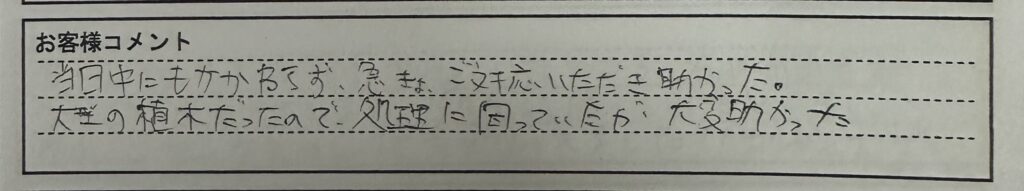 お客様コメント
当日中にもかかわらず、急きょ、ご対応いただき助かった。
大型の植木だったので、処理に困っていたが、大変助かった